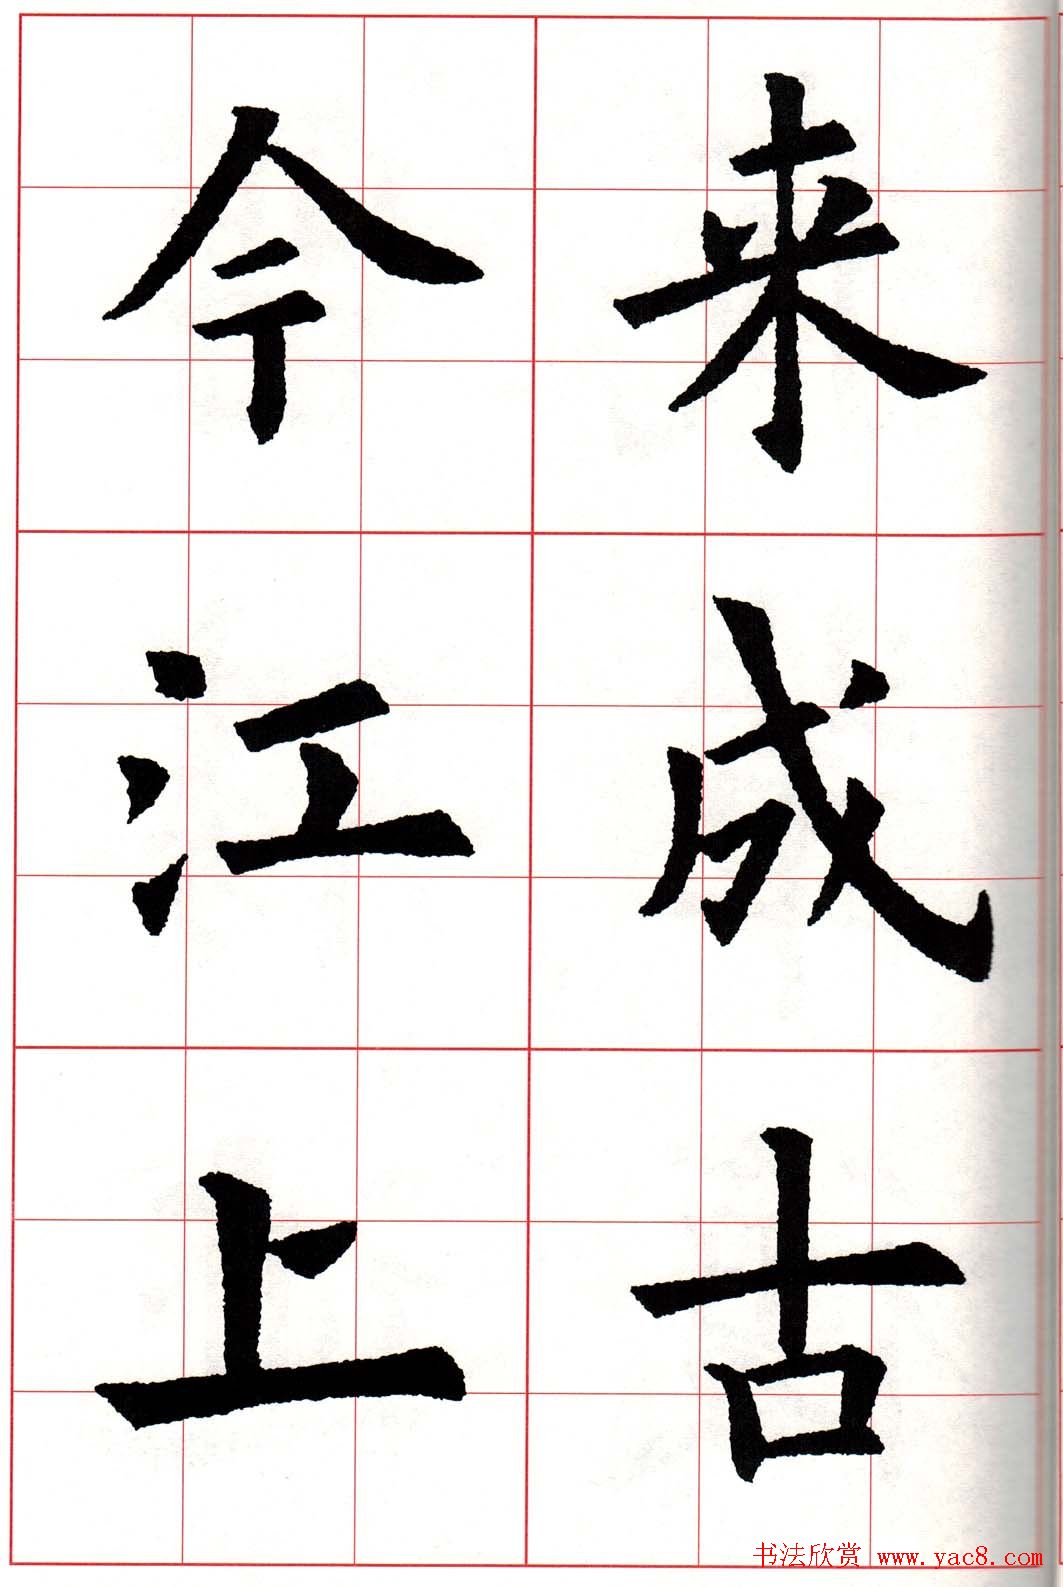 来成古
今江上
书法欣赏 www.yac8.com